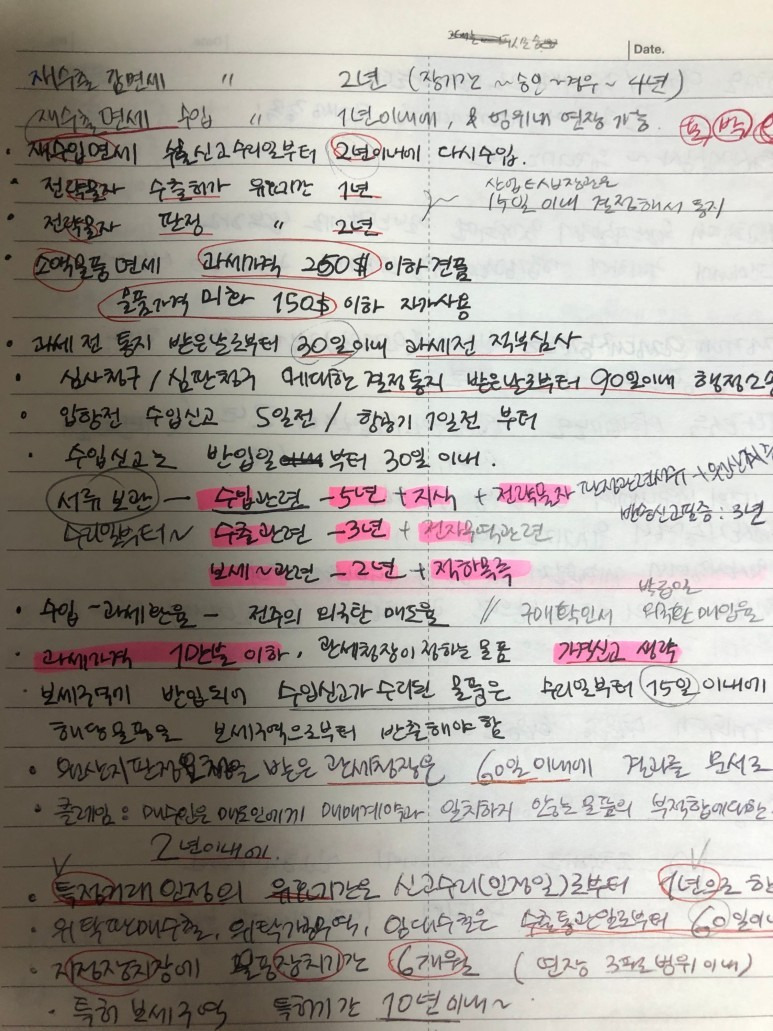 Date.
재수출 감면세 〃 2년 (장기간 ~ 승인 ~ 경우 ~ 4년)
재수출면세 수입 〃 1년이내에, & 범위내 연장 가능.
• 재수입면세 수출신고수리일부터 2년이내에 다시수입.
• 전략물자 수출허가 유효기간 1년
산업E사장관은
15일 이내 결정해서 통지
• 전략물자 판정 〃 2년
• 소액물품면세 과세가격 250$ 이하 견품
물품가격 미화 150$ 이하 자가사용
• 과세전 통지 받은날로부터 30일이내 과세전 적부심사
• 심사청구 / 심판청구 에대한 결정통지 받은날로부터 90일이내 행정소송
• 입항전 수입신고 5일전 / 항공기 1일전 부터
• 수입신고는 반입일부터 30일 이내.
서류 보관 — 수입관련 - 5년 + 지식 + 전략물자
수리일부터~ 수출관련 - 3년 + 전자무역관련
반송신고필증 : 3년
보세~관련 - 2년 + 적하목록
• 수입 - 과세환율 - 전주의 외국환 매도율 // 구매확인서 외국환매입율
• 과세가격 1만불 이하, 관세청장이 정하는 물품 가격신고 생략
• 보세구역에 반입되어 수입신고가 수리된 물품은 수리일부터 15일 이내에
해당물품을 보세구역으로부터 반출해야 함
• 원산지판정 요청을 받은 관세청장은 60일 이내에 결과를 문서로
• 클레임 : 매수인은 매도인에게 매매계약과 일치하지 않는 물품의 부적합에대한
2년이내에.
• 특정거래 인정의 유효기간은 신고수리(인정일)로부터 1년으로 한
• 위탁판매수출, 위탁가공무역, 임대수출은 수출통관일로부터 60일이내
• 지정장치장에 물품장치기간 6개월 (연장 3월범위이내)
• 특허 보세구역 특허기간 10년이내~